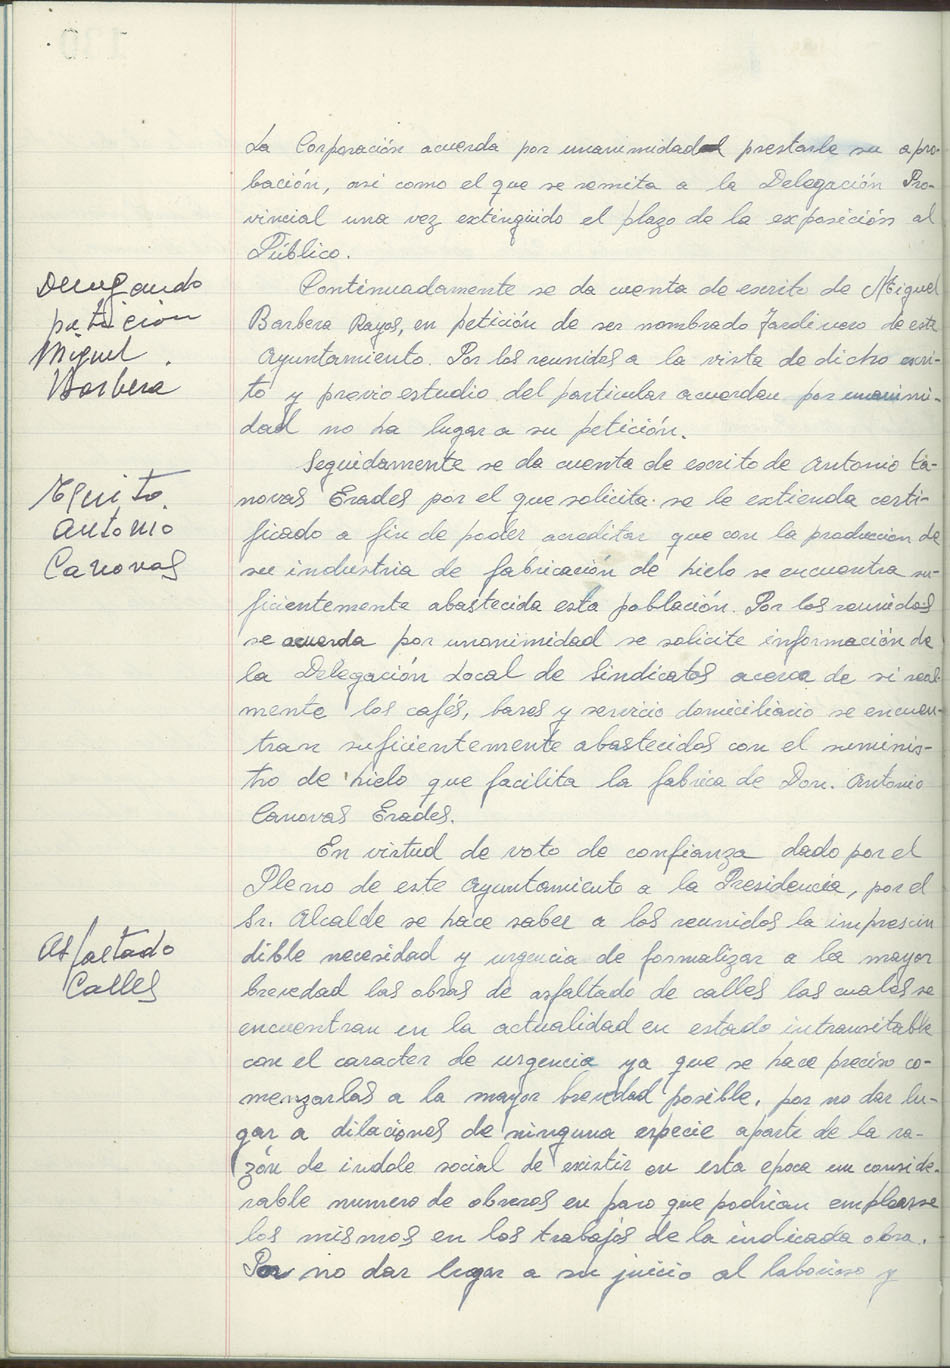 La Corporación acuerda por unanimidad prestarle su apro-
bación, asi como el que se remita a la Delegación Pro-
vincial una vez extinguido el plazo de la exposición al
Público.
Denegando
petición
Miguel
Barberá
Continuadamente se da cuenta de escrito de Miguel
Barbera Rayos, en petición de ser nombrado Jardinero de este
Ayuntamiento. Por los reunidos a la vista de dicho escri-
to y previo estudio del particular acuerdan por unanimi-
dad no ha lugar a su petición.
Escrito
Antonio
Canovas
Seguidamente se da cuenta de escrito de Antonio Ca-
novas Erades por el que solicita se le extienda certi-
ficado a fin de poder acreditar que con la produccion de
su industria de fabricación de hielo se encuentra su-
ficientemente abastecida esta población. Por los reunidos
se acuerda por unanimidad se solicite información de
la Delegación Local de Sindicatos acerca de si real-
mente los cafés, bares y servicio domiciliario se encuen-
tran suficientemente abastecidos con el suminis-
tro de hielo que facilita la fabrica de Don. Antonio
Canovas Erades.
Asfaltado
Calles
En virtud de voto de confianza dado por el
Pleno de este Ayuntamiento a la Presidencia, por el
Sr. Alcalde se hace saber a los reunidos la imprescin
dible necesidad y urgencia de formalizar a la mayor
brevedad las obras de asfaltado de calles las cuales se
encuentran en la actualidad en estado intransitable
con el caracter de urgencia ya que se hace preciso co-
menzarlas a la mayor brevedad posible, por no dar lu-
gar a dilaciones de ninguna especie aparte de la ra-
zón de indole social de existir en esta epoca un conside-
rable numero de obreros en paro que podrian emplearse
los mismos en los trabajos de la indicada obra.
Por no dar lugar a su juicio al laborioso y